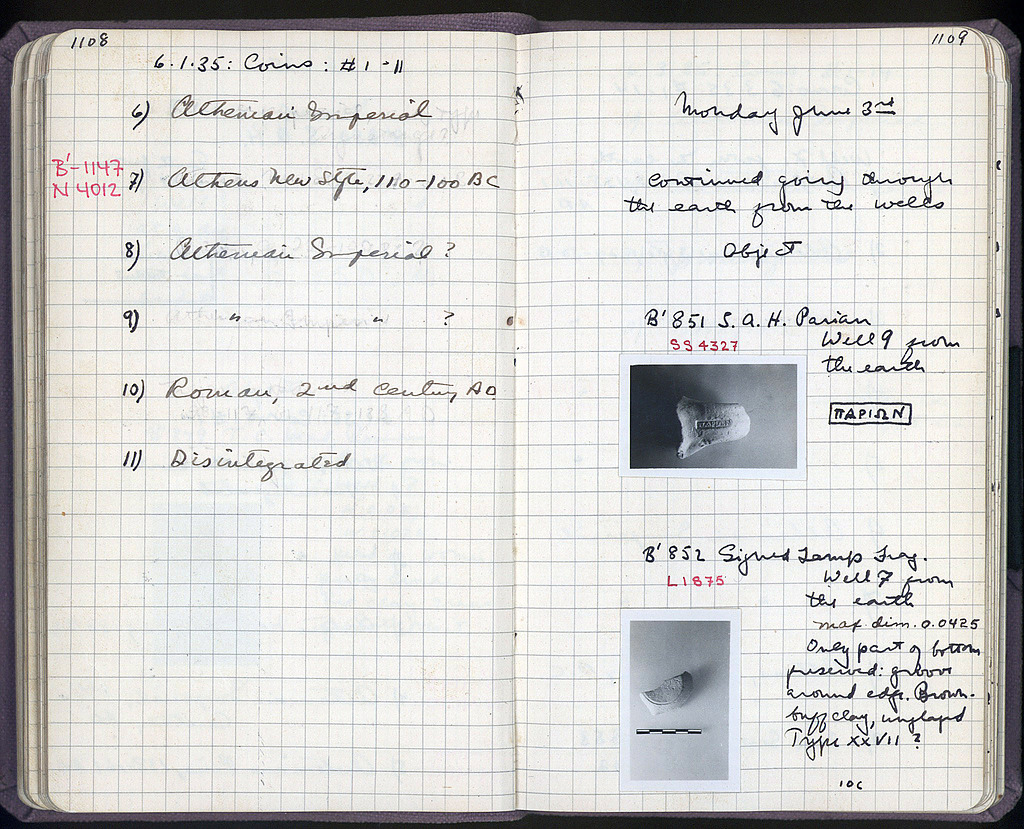 1108
6.1.35: Coins: #1-11
6) Athenian Imperial
B'-1147
N 4012
7) Athens New Style, 110-100 BC
8) Athenian Imperial ?
9) " " ?
10) Roman, 2nd Century AD
11) Disintegrated
1109
Monday June 3rd
Continued going through
the earth from the wells
Object
B' 851 S.A.H. Parian
SS 4327
Well 9 from
the earth
ΠΑΡΙΩΝ
B' 852 Signed Lamp Frag.
L 1875
Well 7 from
the earth
max. dim. 0.0425
Only part of bottom
preserved: groove
around edge. Brown-
buff clay, unglazed
Type XXVII ?
10C